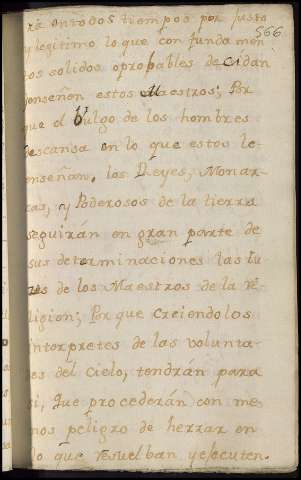 566
rá entodos tiempos por justo
y legitimo lo que con fundamen
tos solidos oprobables decidan
yenseñen estos Maestros; Por
que el Vulgo de los hombres
descansa en lo que estos le
enseñan. los Reyes, Monar
cas, y Poderosos de la tierra
seguirán en gran parte de
sus determinaciones las lu
zes de los Maestros de la Re
ligion; Por que creiendolos
interpretes de las volunta
des del cielo, tendrán para
si, que procederán con me
nos peligro de herrar en
lo que resuelban yejecuten.